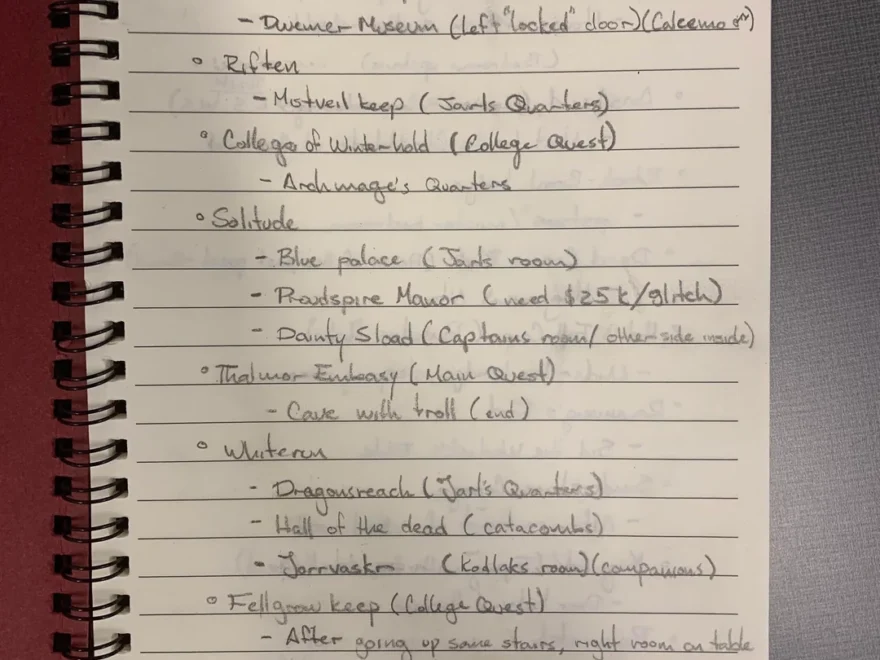 - Dwemer Museum (left "locked" door)(Calcemo's)
◦ Riften
- Mistveil keep (Jarls Quarters)
◦ College of Winterhold (College Quest)
- Archmage's Quarters
◦ Solitude
- Blue palace (Jarls room)
- Proudspire Manor (need $25k/glitch)
- Dainty Sload (Captains room/ other side inside)
◦ Thalmor Embasy (Main Quest)
- Cave with troll (end)
◦ Whiterun
- Dragonsreach (Jarl's Quarters)
- Hall of the dead (catacombs)
- Jorrvaskr (Kodlaks room)(companions)
◦ Fellgrow keep (College Quest)
- After going up some stairs, right room on table